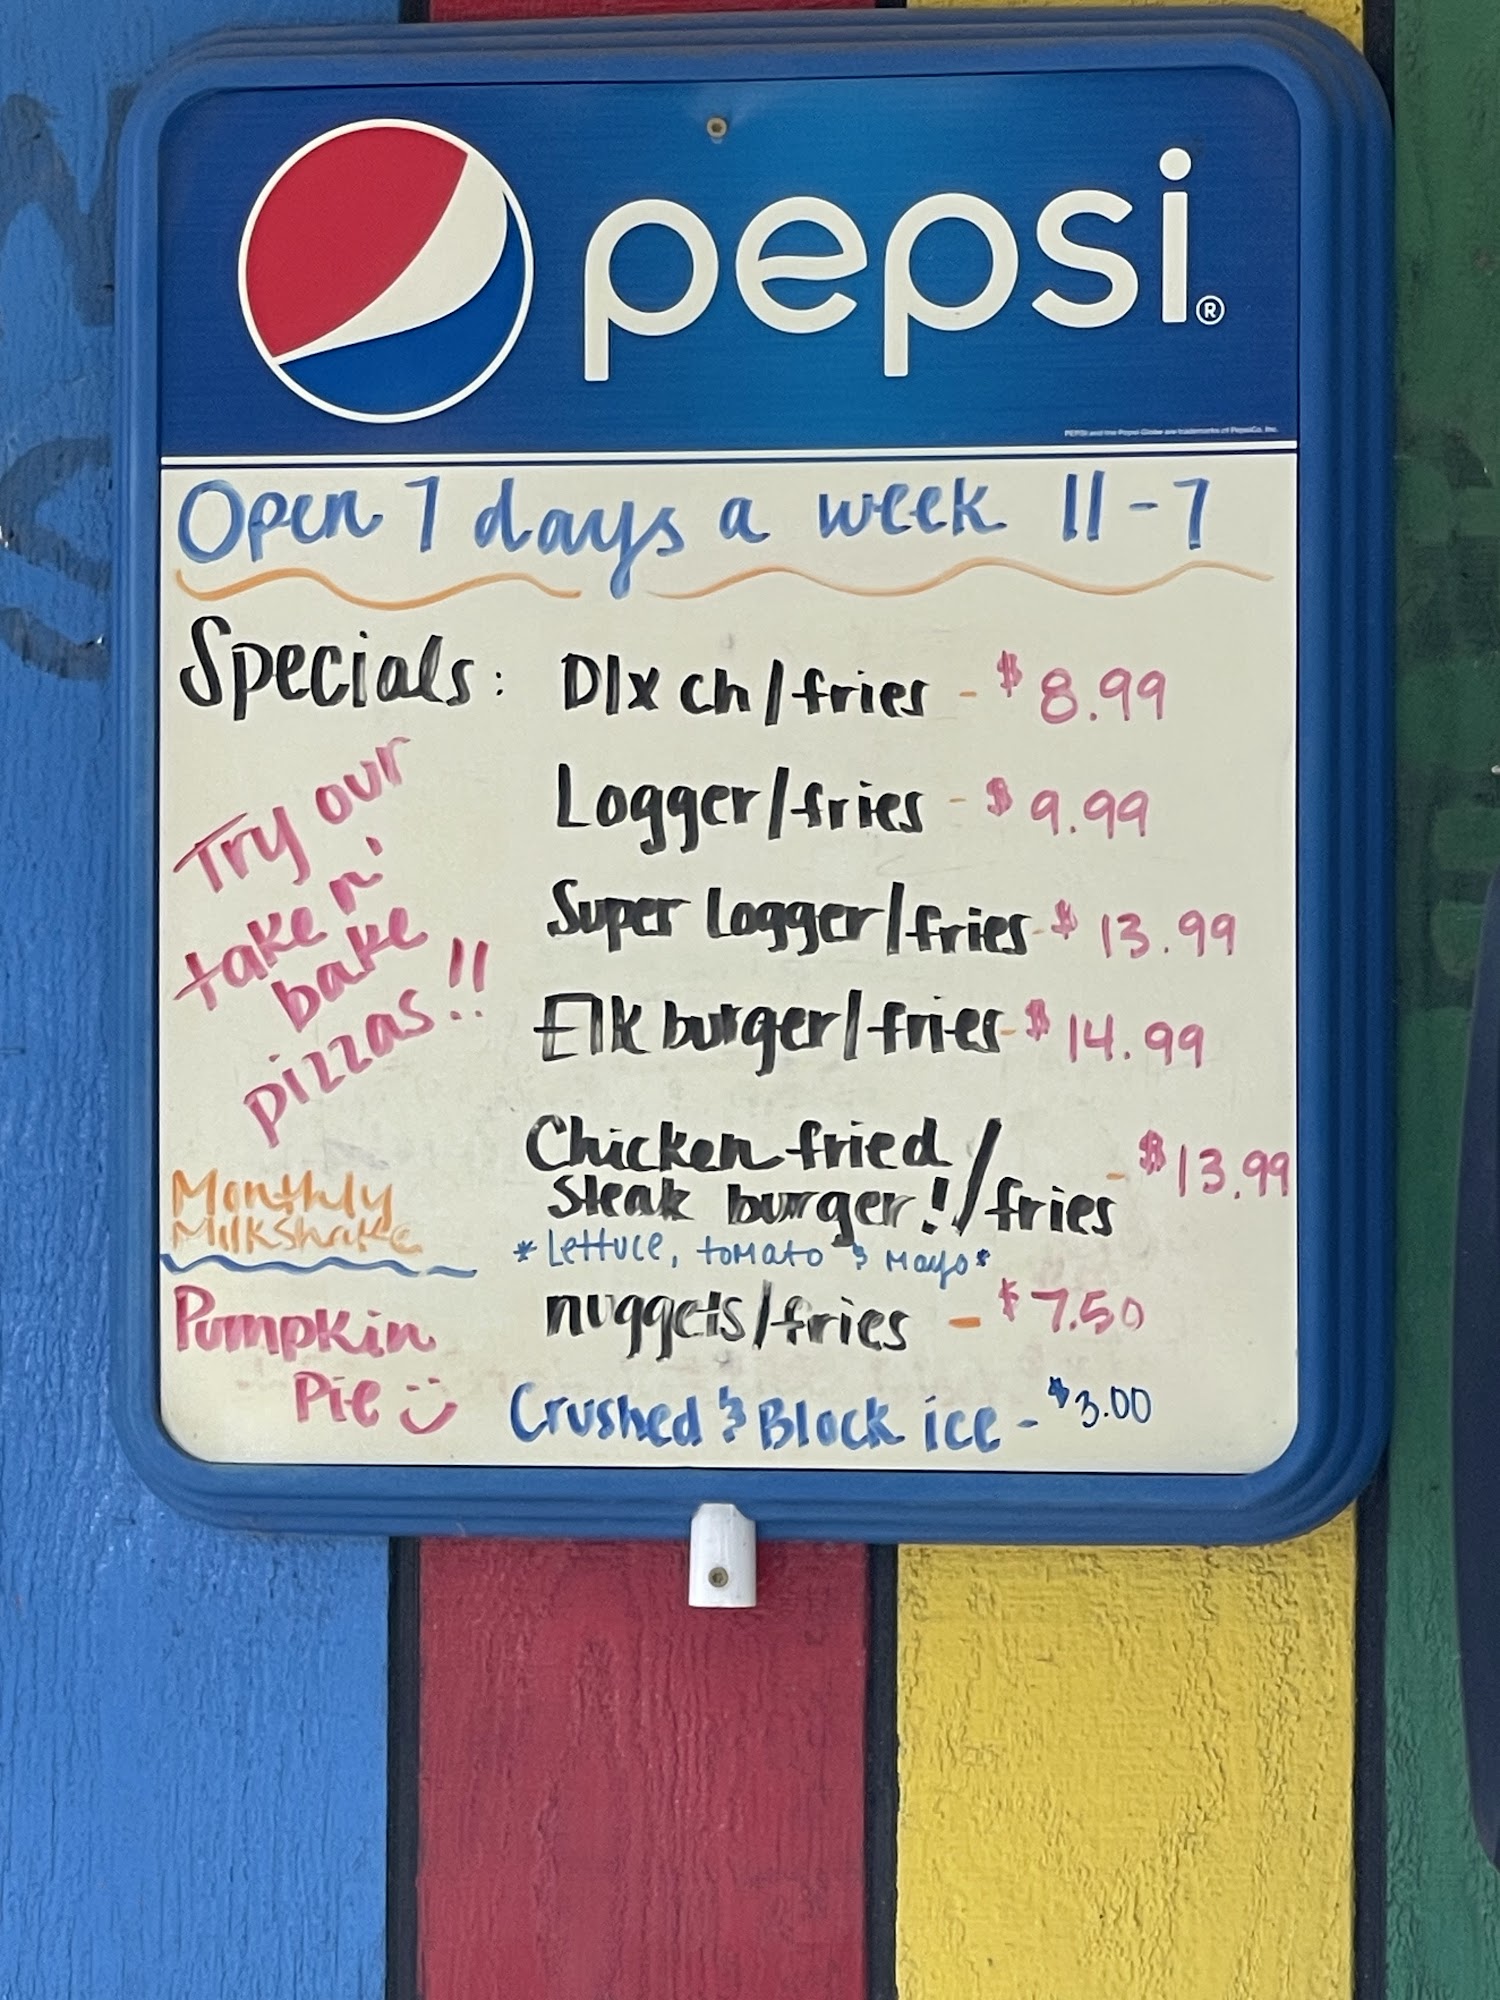 pepsi®
PEPSI and the Pepsi Globe are trademarks of PepsiCo, Inc.
Open 7 days a week 11-7
Specials:
Dlx ch/fries - $8.99
Logger/fries - $9.99
Super Logger/fries - $13.99
Elk burger/fries - $14.99
Chicken fried
steak burger!/fries - $13.99
*Lettuce, tomato & mayo*
nuggets/fries - $7.50
Crushed & Block ice - $3.00
Try our
take n'
bake
pizzas!!
Monthly
Milkshake
Pumpkin
Pie